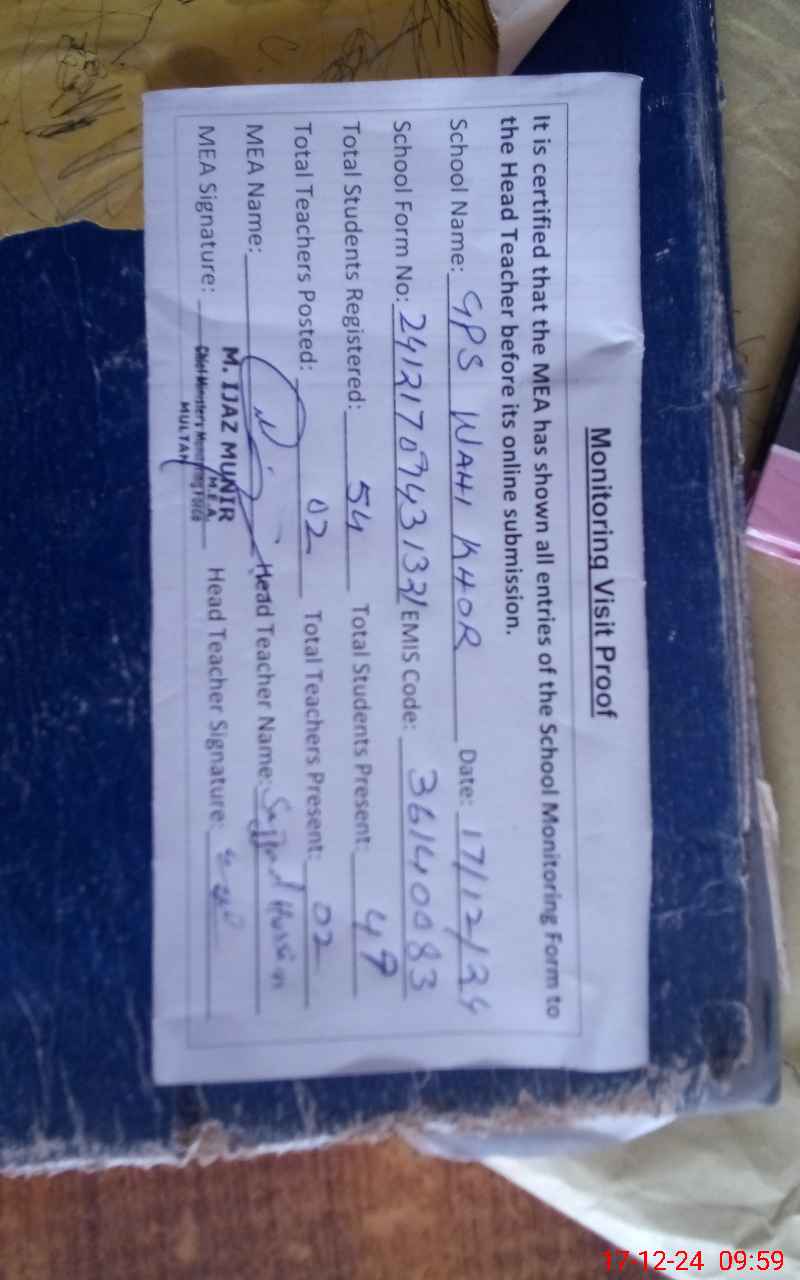 Monitoring Visit Proof
It is certified that the MEA has shown all entries of the School Monitoring Form to
the Head Teacher before its online submission.
School Name: GPS WAHI KHOR Date: 17/12/24
School Form No: EMIS Code: 36140083
Total Students Registered: 54 Total Students Present: 49
Total Teachers Posted: 02 Total Teachers Present: 02
MEA Name: Head Teacher Name: Sajjad Hussain
MEA Signature: Head Teacher Signature:
M. IJAZ MUNIR
M.E.A.
Chief Minister's Monitoring Force
MULTAN
17-12-24 09:59